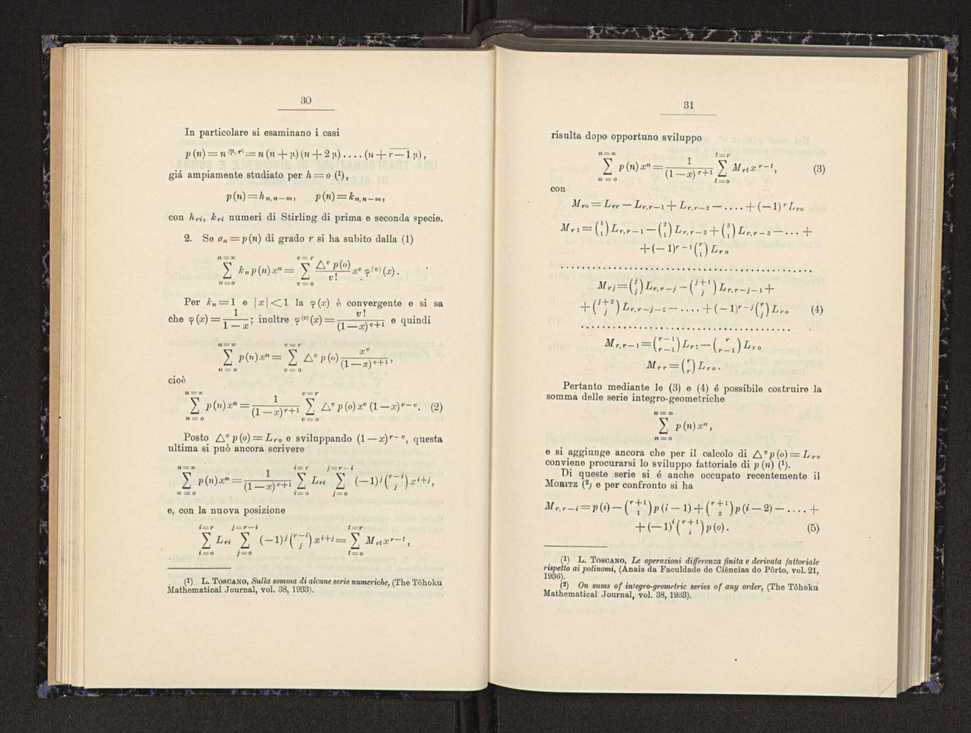 30
In particolare si esaminano i casi
p (n) = n^(μ, r) = n (n + μ) (n + 2 μ) .... (n + r — 1 μ),
giá ampiamente studiato per h = o (¹),
p (n) = h_{n, n—m},  p (n) = k_{n, n—m},
con h_{ri}, k_{ri} numeri di Stirling di prima e seconda specie.
2. Se σ_n = p (n) di grado r si ha subito dalla (1)
∑_{n=o}^{n=∞} k_n p (n) x^n = ∑_{v=o}^{v=r} △^v p (o) / v! x^v φ^(v) (x).
Per k_n = 1 e | x | < 1 la φ (x) è convergente e si sa
che φ (x) = 1 / 1 — x ; inoltre φ^(v) (x) = v! / (1 — x)^{v+1} e quindi
∑_{n=o}^{n=∞} p (n) x^n = ∑_{v=o}^{v=r} △^v p (o) x^v / (1 — x)^{v+1},
cioè
∑_{n=o}^{n=∞} p (n) x^n = 1 / (1 — x)^{r+1} ∑_{v=o}^{v=r} △^v p (o) x^v (1 — x)^{r—v}. (2)
Posto △^v p (o) = L_{rv} e sviluppando (1 — x)^{r—v}, questa
ultima si può ancora scrivere
∑_{n=o}^{n=∞} p (n) x^n = 1 / (1 — x)^{r+1} ∑_{i=o}^{i=r} L_{ri} ∑_{j=o}^{j=r—i} (—1)^j (r—i j) x^{i+j},
e, con la nuova posizione
∑_{i=o}^{i=r} L_{ri} ∑_{j=o}^{j=r—i} (—1)^j (r—i j) x^{i+j} = ∑_{t=o}^{t=r} M_{rt} x^{r—t},
(¹) L. TOSCANO, Sulla somma di alcune serie numeriche, (The Tôhoku
Mathematical Journal, vol. 38, 1933).
31
risulta dopo opportuno sviluppo
∑_{n=o}^{n=∞} p (n) x^n = 1 / (1 — x)^{r+1} ∑_{t=o}^{t=r} M_{rt} x^{r—t}, (3)
con
M_{ro} = L_{rr} — L_{r,r—1} + L_{r,r—2} — .... + (—1)^r L_{ro}
M_{r1} = (1 1) L_{r,r—1} — (2 1) L_{r,r—2} + (3 1) L_{r,r—3} — ... +
+ (—1)^{r—1} (r 1) L_{ro}
........................................
M_{rj} = (j j) L_{r,r—j} — (j+1 j) L_{r,r—j—1} +
+ (j+2 j) L_{r,r—j—2} — .... + (—1)^{r—j} (r j) L_{ro} (4)
........................................
M_{r,r—1} = (r—1 r—1) L_{r1} — (r r—1) L_{ro}
M_{rr} = (r r) L_{ro}.
Pertanto mediante le (3) e (4) é possibile costruire la
somma delle serie integro-geometriche
∑_{n=o}^{n=∞} p (n) x^n,
e si aggiunge ancora che per il calcolo di △^v p (o) = L_{rv}
conviene procurarsi lo sviluppo fattoriale di p (n) (¹).
Di queste serie si é anche occupato recentemente il
MORITZ (²) e per confronto si ha
M_{r,r—i} = p (i) — (r+1 1) p (i — 1) + (r+1 2) p (i — 2) — .... +
+ (—1)^i (r+1 i) p (o). (5)
(¹) L. TOSCANO, Le operazioni differenza finita e derivata fattoriale
rispetto ai polinomi, (Anais da Faculdade do Ciências do Pôrto, vol. 21,
1936).
(²) On sums of integro-geometric series of any order, (The Tôhoku
Mathematical Journal, vol. 38, 1933).